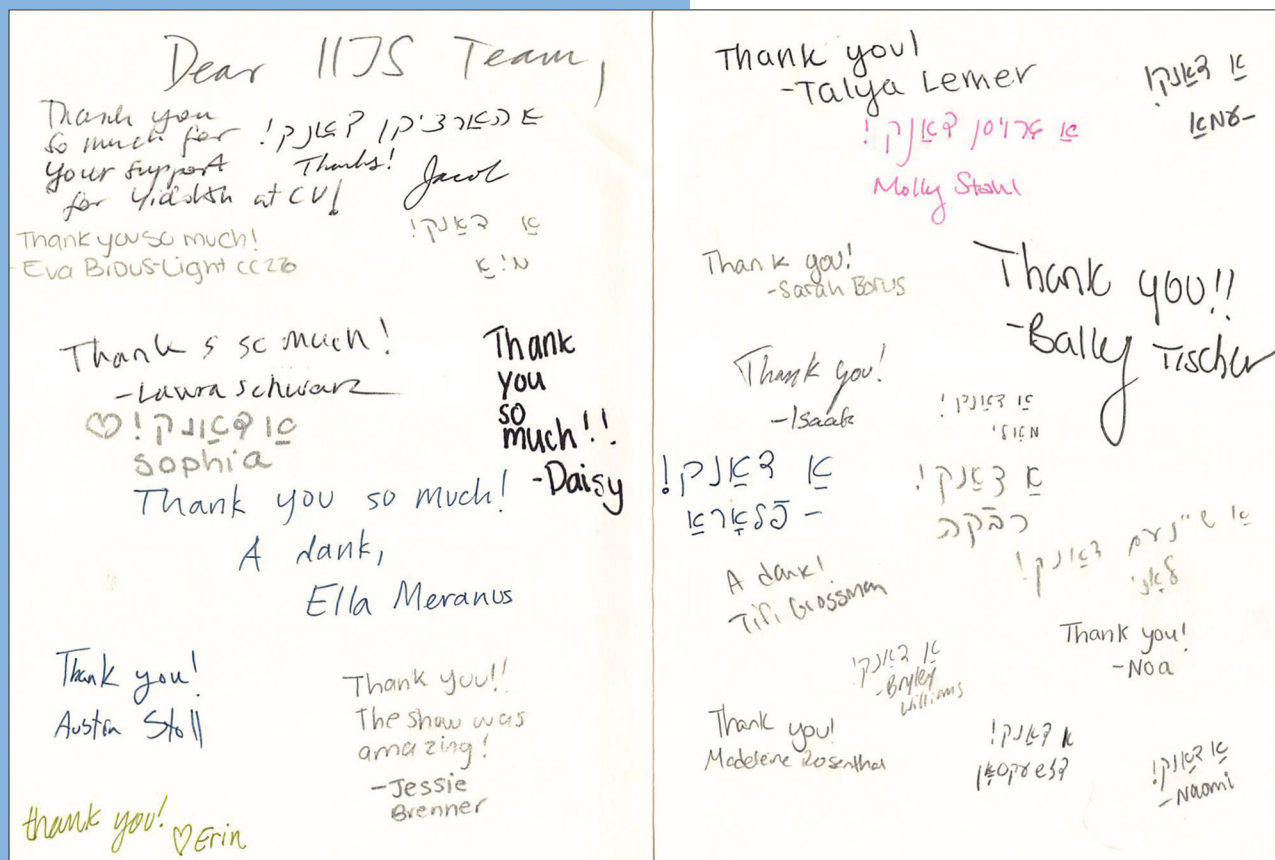 Dear IIJS Team,
Thank you
so much for
your support
for Yiddish at CU!
אַ האַרציקן דאַנק!
Thanks!
Jacob
Thank you so much!
-Eva Brous-Light cc 26
אַ דאַנק!
Thanks so much!
-Laura Schwarz
Thank
you
so
much!!
-Daisy
אַ דאַנק! ♡
Sophia
Thank you so much!
A dank,
Ella Meranus
Thank you!
Austin Stoll
Thank you!!
The show was
amazing!
-Jessie
Brenner
thank you!
♡ Erin
Thank you!
-Talya Lerner
אַ דאַנק!
-עמאַ
אַ גרויסן דאַנק!
Molly Stahl
Thank you!
-Sarah Borus
Thank you!!
-Bally Tischer
Thank you!
-Isaak
אַ דאַנק!
אַ דאַנק!
- פֿלאָראַ
אַ דאַנק!
רבֿקה
אַ שיינעם דאַנק!
A dank!
Tifi Grossman
Thank you!
-Noa
אַ דאַנק!
-Bryley
Williams
Thank you!
Madeleine Rosenthal
אַ דאַנק!
אַ דאַנק!
-Naomi